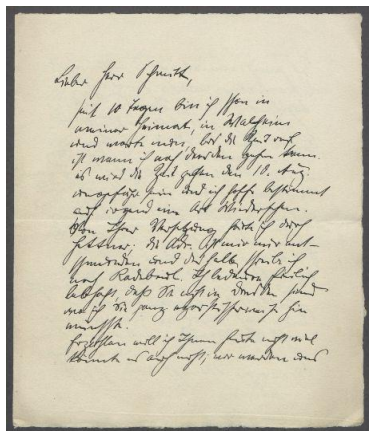 Lieber Herr Schmidt,
seit 10 Tagen bin ich schon in
meiner Heimat, in Walheim
und warte nun bis die Zeit reif
ist wann ich nach Dresden gehen kann.
es wird die Zeit gegen den 10. Aug.
ungefähr sein und ich hoffe bestimmt
auf irgend eine Art Wiedersehen.
Von Ihrer Versetzung hörte ich durch
die Adr. ist mir nur
und deshalb schreibe ich
nach Radebeul. Ich bedaure
lebhaft, daß Sie nicht in Dresden sind
wo ich Sie ganz
Erzählen will ich Ihnen heute nicht viel
könnte es auch nicht, wir werden das